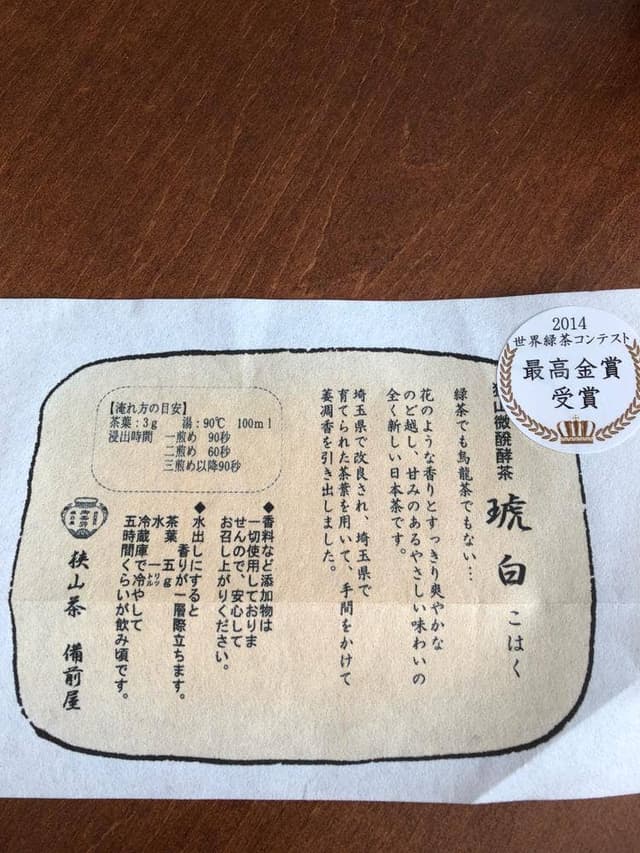 2014
世界緑茶コンテスト
最高金賞
受賞
狭山微醗酵茶
琥白 こはく
緑茶でも烏龍茶でもない…
花のような香りとすっきり爽やかな
のど越し、甘みのあるやさしい味わいの
全く新しい日本茶です。
埼玉県で改良され、埼玉県で
育てられた茶葉を用いて、手間をかけて
萎凋香を引き出しました。
【淹れ方の目安】
茶葉:3g 湯:90℃ 100ml
浸出時間 一煎め 90秒
二煎め 60秒
三煎め以降90秒
◆香料など添加物は
一切使用しておりま
せんので、安心して
お召し上がりください。
◆水出しにすると
香りが一層際立ちます。
茶葉 五g
水 一リットル
冷蔵庫で冷やして
五時間くらいが飲み頃です。
狭山茶 備前屋